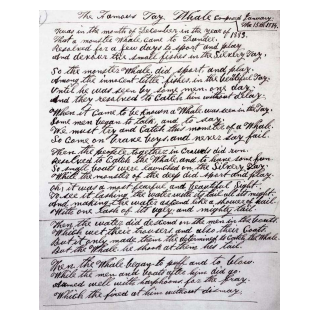 The Famous Tay Whale Composed January
the 15th 1884
Twas in the month of December in the year of 1883.
That a monster whale came to Dundee
Resolved for a few days to sport and play
And devour the small fishes in the Silvery Tay.
So the monster Whale did sport and play.
Among the innocent little fishes in the beautiful Tay.
Until he was seen by some men one day
And they resolved to Catch him without delay.
When it came to be known a Whale was seen in the Tay.
Some men began to talk, and to say.
We must try and Catch this monster of a Whale.
So come on brave boys and never say fail.
Then the people together in Crowds did run.
Resolved to Catch the Whale and to have some fun.
So small boats were launched on the Silvery Tay.
While the monster of the deep did sport and play.
Oh! it was a most fearful and beautiful Sight
To see it lashing the water with its tail all its might.
And making the water ascend like a shower of hail
With one lash of its ugly and mighty tail
Then the water did descend on the men in the boats
Which wet their trousers and also their Coats.
But it only made them the determined to Catch the Whale
But the Whale he shook at them his tail.
Then the Whale began to puff and to blow.
While the men and boats after him did go.
Armed well with harpoons for the fray.
Which they fired at him without dismay.